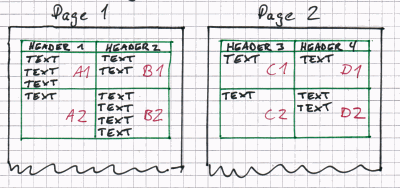 Page 1
HEADER 1 HEADER 2
TEXT
TEXT
TEXT
A1
TEXT
TEXT
B1
TEXT
A2
TEXT
TEXT
TEXT
TEXT
B2
Page 2
HEADER 3 HEADER 4
TEXT
C1
TEXT
D1
TEXT
C2
TEXT
TEXT
D2